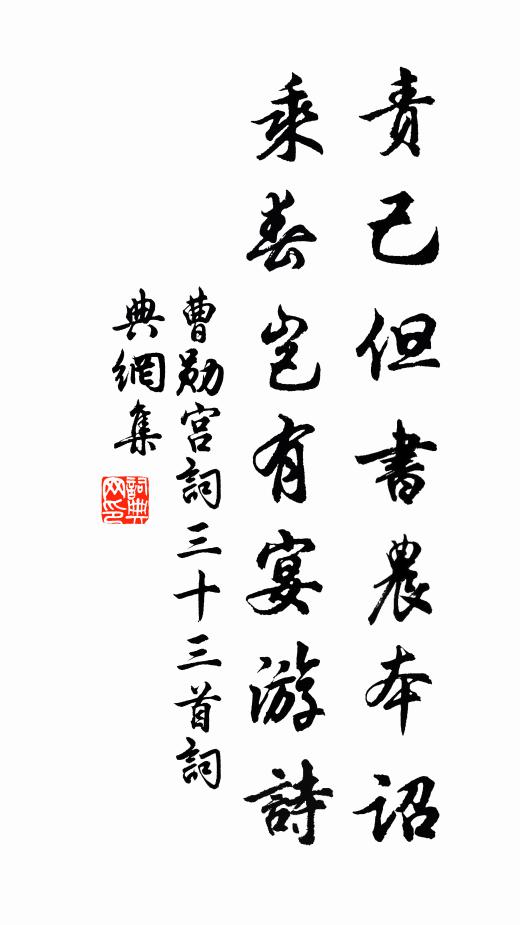 责己但書農本詔
乘春岂有宴游詩
曹勋宫詞三十三首詞
典網集
詞典网印